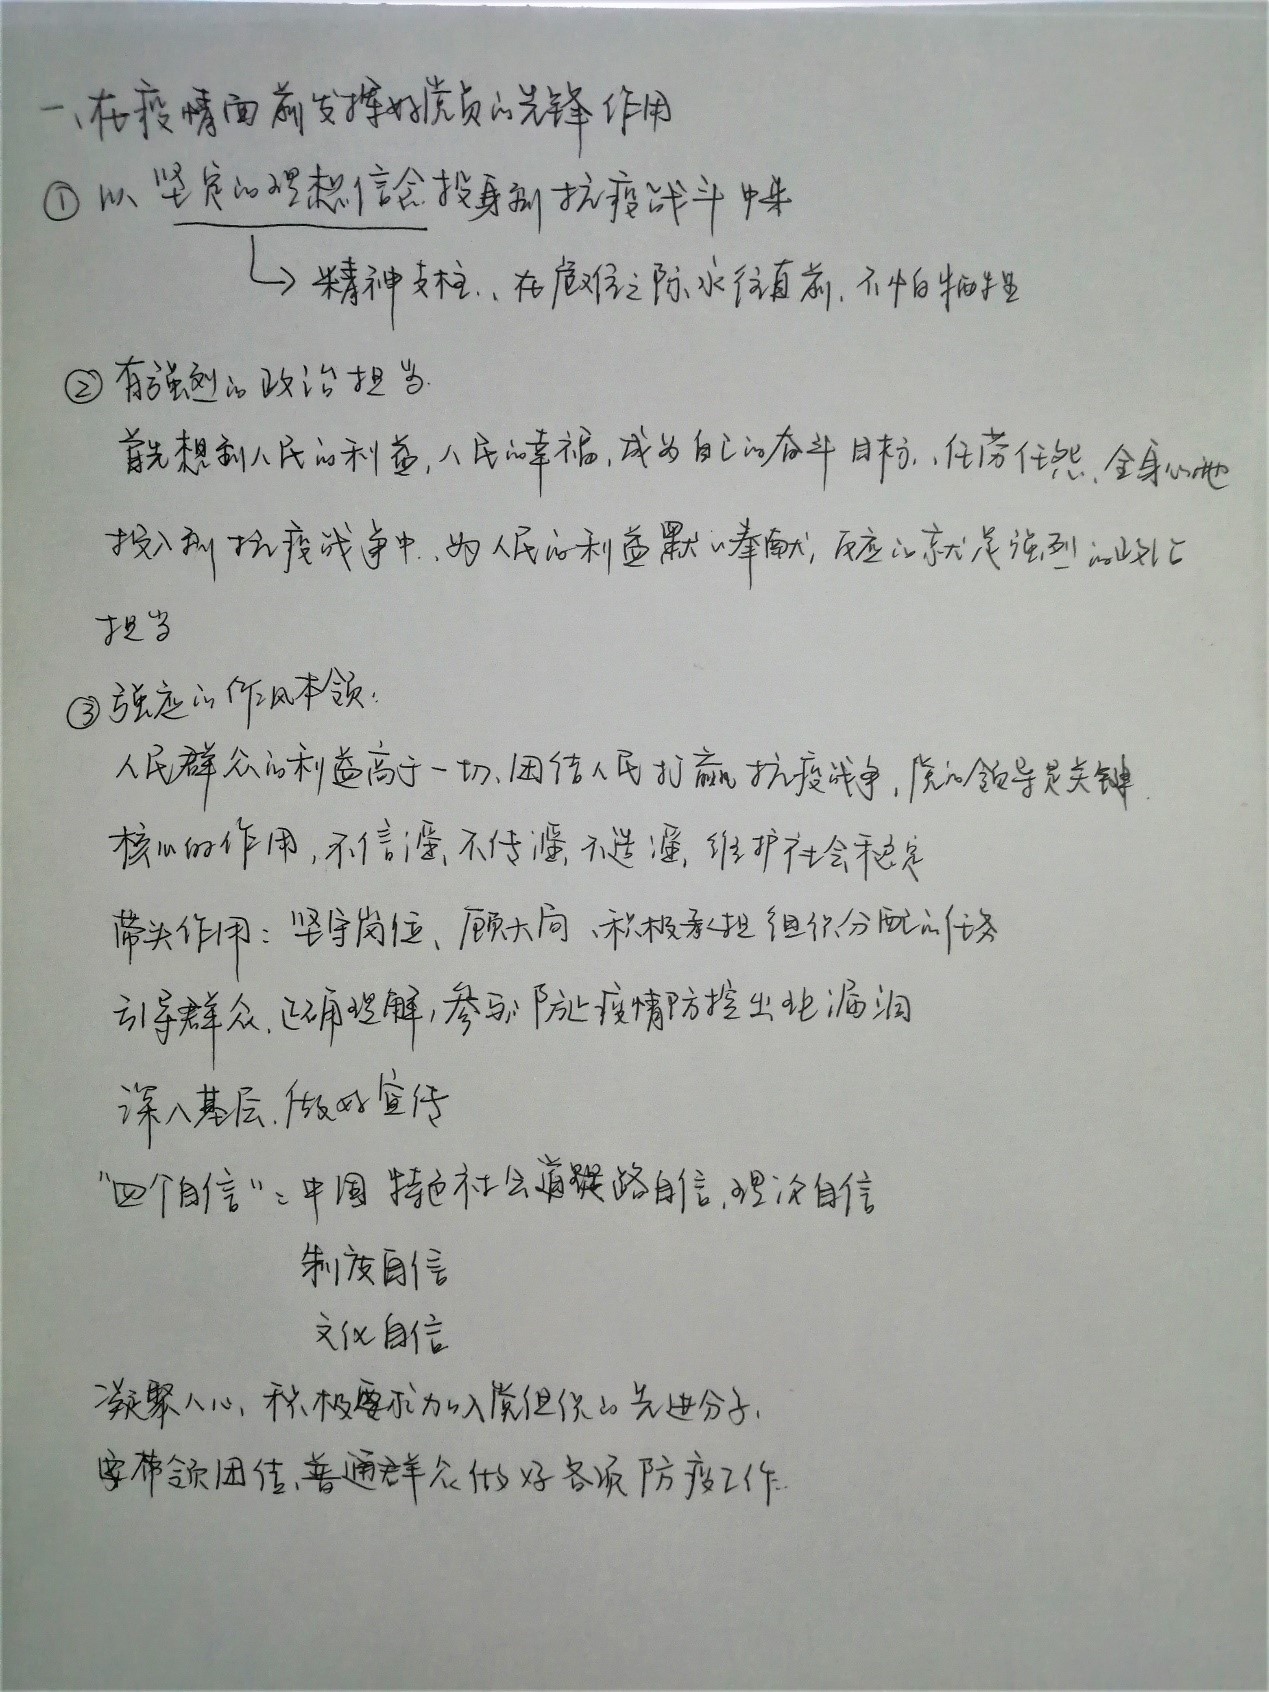 一、在疫情面前发挥好党员的先锋作用
① 以坚定的理想信念投身到抗疫战斗中来
精神支柱、在危难之际永往直前、不怕牺牲
② 有强烈的政治担当.
首先想到人民的利益,人民的幸福,成为自己的奋斗目标、任劳任怨、全身心地
投入到抗疫战争中、为人民的利益默默奉献,反应的就是强烈的政治
担当
③ 强应的作风本领:
人民群众的利益高于一切、团结人民打赢抗疫战争,党的领导是关键
核心的作用,不信谣,不传谣,不造谣,维护社会稳定
带头作用:坚守岗位、顾大局、积极承担组织分配的任务
引导群众,正确理解,参与防止疫情防控出现漏洞
深入基层,做好宣传
"四个自信":中国特色社会道路自信,理论自信
制度自信
文化自信
凝聚人心,积极要求加入党组织的先进分子,
带领团结、普通群众做好各项防疫工作.